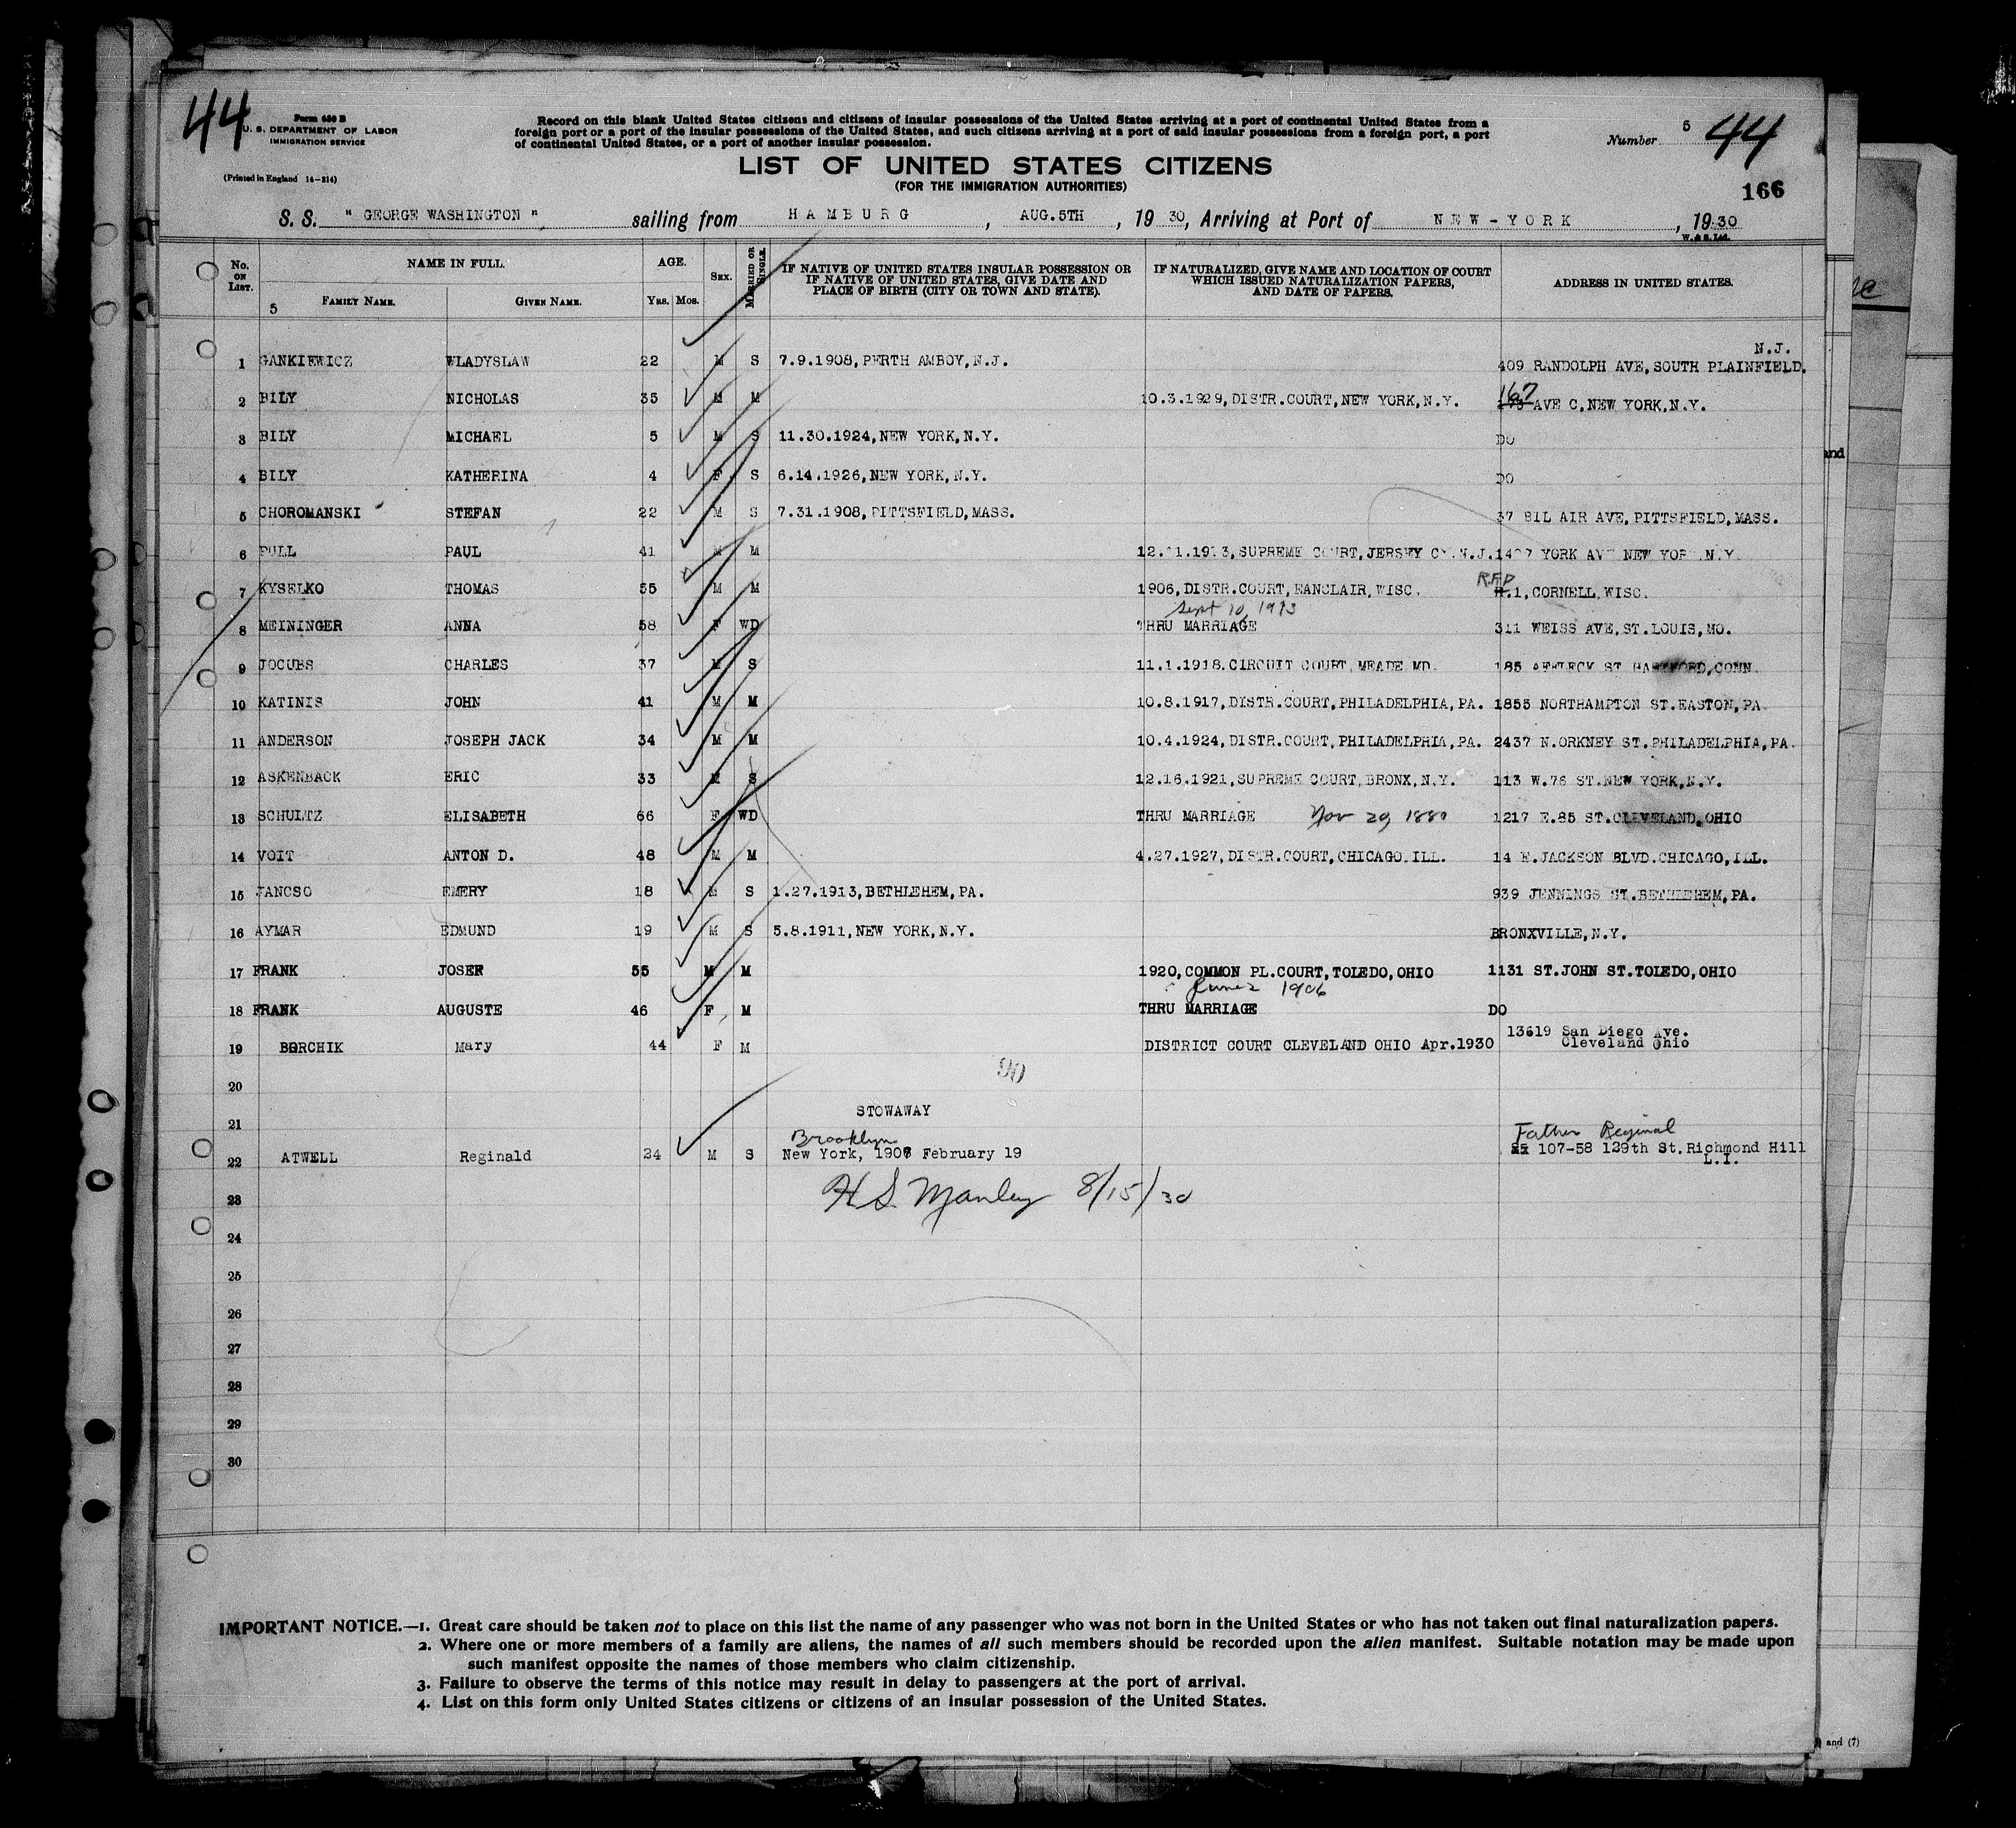 44
Form 630 B
U. S. DEPARTMENT OF LABOR
IMMIGRATION SERVICE
(Printed in England 14-214)
Record on this blank United States citizens and citizens of insular possessions of the United States arriving at a port of continental United States from a
foreign port or a port of the insular possessions of the United States, and such citizens arriving at a port of said insular possessions from a foreign port, a port
of continental United States, or a port of another insular possession.
LIST OF UNITED STATES CITIZENS
(FOR THE IMMIGRATION AUTHORITIES)
Number 5 44
166
S. S. " GEORGE WASHINGTON " sailing from HAMBURG, AUG.5TH, 19 30, Arriving at Port of NEW-YORK, 19 30
W. & S. Ltd.
No. ON LIST. NAME IN FULL. AGE. SEX. MARRIED OR SINGLE. IF NATIVE OF UNITED STATES INSULAR POSSESSION OR IF NATIVE OF UNITED STATES, GIVE DATE AND PLACE OF BIRTH (CITY OR TOWN AND STATE). IF NATURALIZED, GIVE NAME AND LOCATION OF COURT WHICH ISSUED NATURALIZATION PAPERS, AND DATE OF PAPERS. ADDRESS IN UNITED STATES.
5 FAMILY NAME. GIVEN NAME. YRS. MOS.
N.J.
1 GANKIEWICZ WLADYSLAW 22 M S 7.9.1908, PERTH AMBOY, N.J. 409 RANDOLPH AVE, SOUTH PLAINFIELD.
2 BILY NICHOLAS 35 M M 10.3.1929, DISTR.COURT, NEW YORK, N.Y. 167 AVE C, NEW YORK, N.Y.
3 BILY MICHAEL 5 M S 11.30.1924, NEW YORK, N.Y. DO
4 BILY KATHERINA 4 F S 6.14.1926, NEW YORK, N.Y. DO
5 CHOROMANSKI STEFAN 22 M S 7.31.1908, PITTSFIELD, MASS. 37 BIL AIR AVE, PITTSFIELD, MASS.
6 PAUL 41 M M SUPREME COURT, JERSEY CY. N.J. YORK AVE NEW YORK N.Y.
7 KYSELKO THOMAS 55 M M 1906, DISTR.COURT, EANCLAIR, WISC. R.F.D .1, CORNELL WISC.
Sept 10, 1913
8 MEININGER ANNA 58 F WD THRU MARRIAGE 311 WEISS AVE, ST.LOUIS, MO.
9 JOCUBS CHARLES 37 M S 11.1.1918. CIRCUIT COURT, MEADE MD. 185 AFFLECK ST HARTFORD, CONN.
10 KATINIS JOHN 41 M M 10.8.1917, DISTR.COURT, PHILADELPHIA, PA. 1855 NORTHAMPTON ST. EASTON, PA.
11 ANDERSON JOSEPH JACK 34 M M 10.4.1924, DISTR.COURT, PHILADELPHIA, PA. 2437 N.ORKNEY ST. PHILADELPHIA, PA.
12 ASKENBACK ERIC 33 M S 12.16.1921, SUPREME COURT, BRONX, N.Y. 113 W.76 ST. NEW YORK, N.Y.
13 SCHULTZ ELISABETH 66 F WD THRU MARRIAGE Nov 29, 1880 1217 E.85 ST. CLEVELAND, OHIO
14 VOIT ANTON D. 48 M M 4.27.1927, DISTR.COURT, CHICAGO. ILL. 14 E. JACKSON BLVD. CHICAGO, ILL.
15 JANOSO EMERY 18 M S 1.27.1913, BETHLEHEM, PA. 939 JENNINGS ST. BETHLEHEM, PA.
16 AYMAR EDMUND 19 M S 5.8.1911, NEW YORK, N.Y. BRONXVILLE, N.Y.
17 FRANK JOSER 55 M M 1920, COMMON PL.COURT, TOLEDO, OHIO 1131 ST.JOHN ST. TOLEDO, OHIO
June 2 1906
18 FRANK AUGUSTE 46 F M THRU MARRIAGE DO
19 BORCHIK Mary 44 F M DISTRICT COURT CLEVELAND OHIO Apr.1930 13619 San Diego Ave.
Cleveland Ohio
90
20
STOWAWAY
21
Brooklyn Father Reginal
22 ATWELL Reginald 24 M S New York, 1906 February 19 107-58 129th St. Richmond Hill
L.I.
H S. Manley 8/15/30
23
24
25
26
27
28
29
30
IMPORTANT NOTICE.—1. Great care should be taken not to place on this list the name of any passenger who was not born in the United States or who has not taken out final naturalization papers.
2. Where one or more members of a family are aliens, the names of all such members should be recorded upon the alien manifest. Suitable notation may be made upon
such manifest opposite the names of those members who claim citizenship.
3. Failure to observe the terms of this notice may result in delay to passengers at the port of arrival.
4. List on this form only United States citizens or citizens of an insular possession of the United States.
and
and (7)